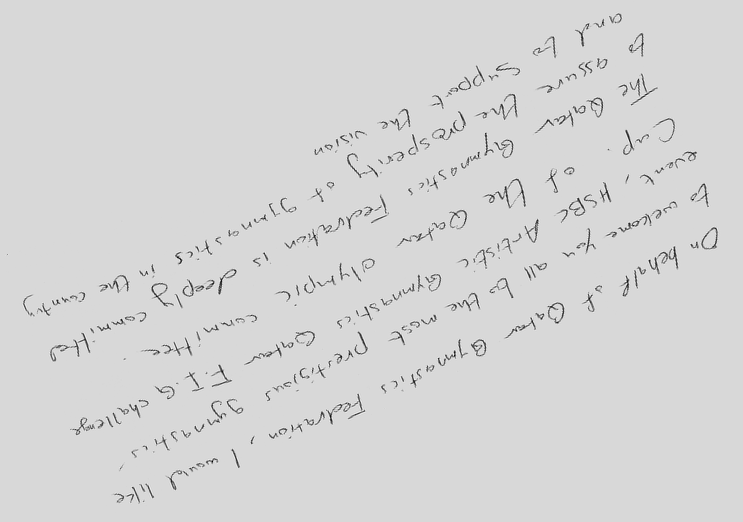 On behalf of Qatar Gymnastics Fedration, I would like
to welcome you all to the most prestigious gymnastics
event, HSBC Artistic Gymnastics Qatar F.I.G challenge
Cup. of the Qatar olympic committee.
The Qatar Gymnastics Fedration is deeply committed
to assure the prosperity of gymnastics in the country
and to support the vision